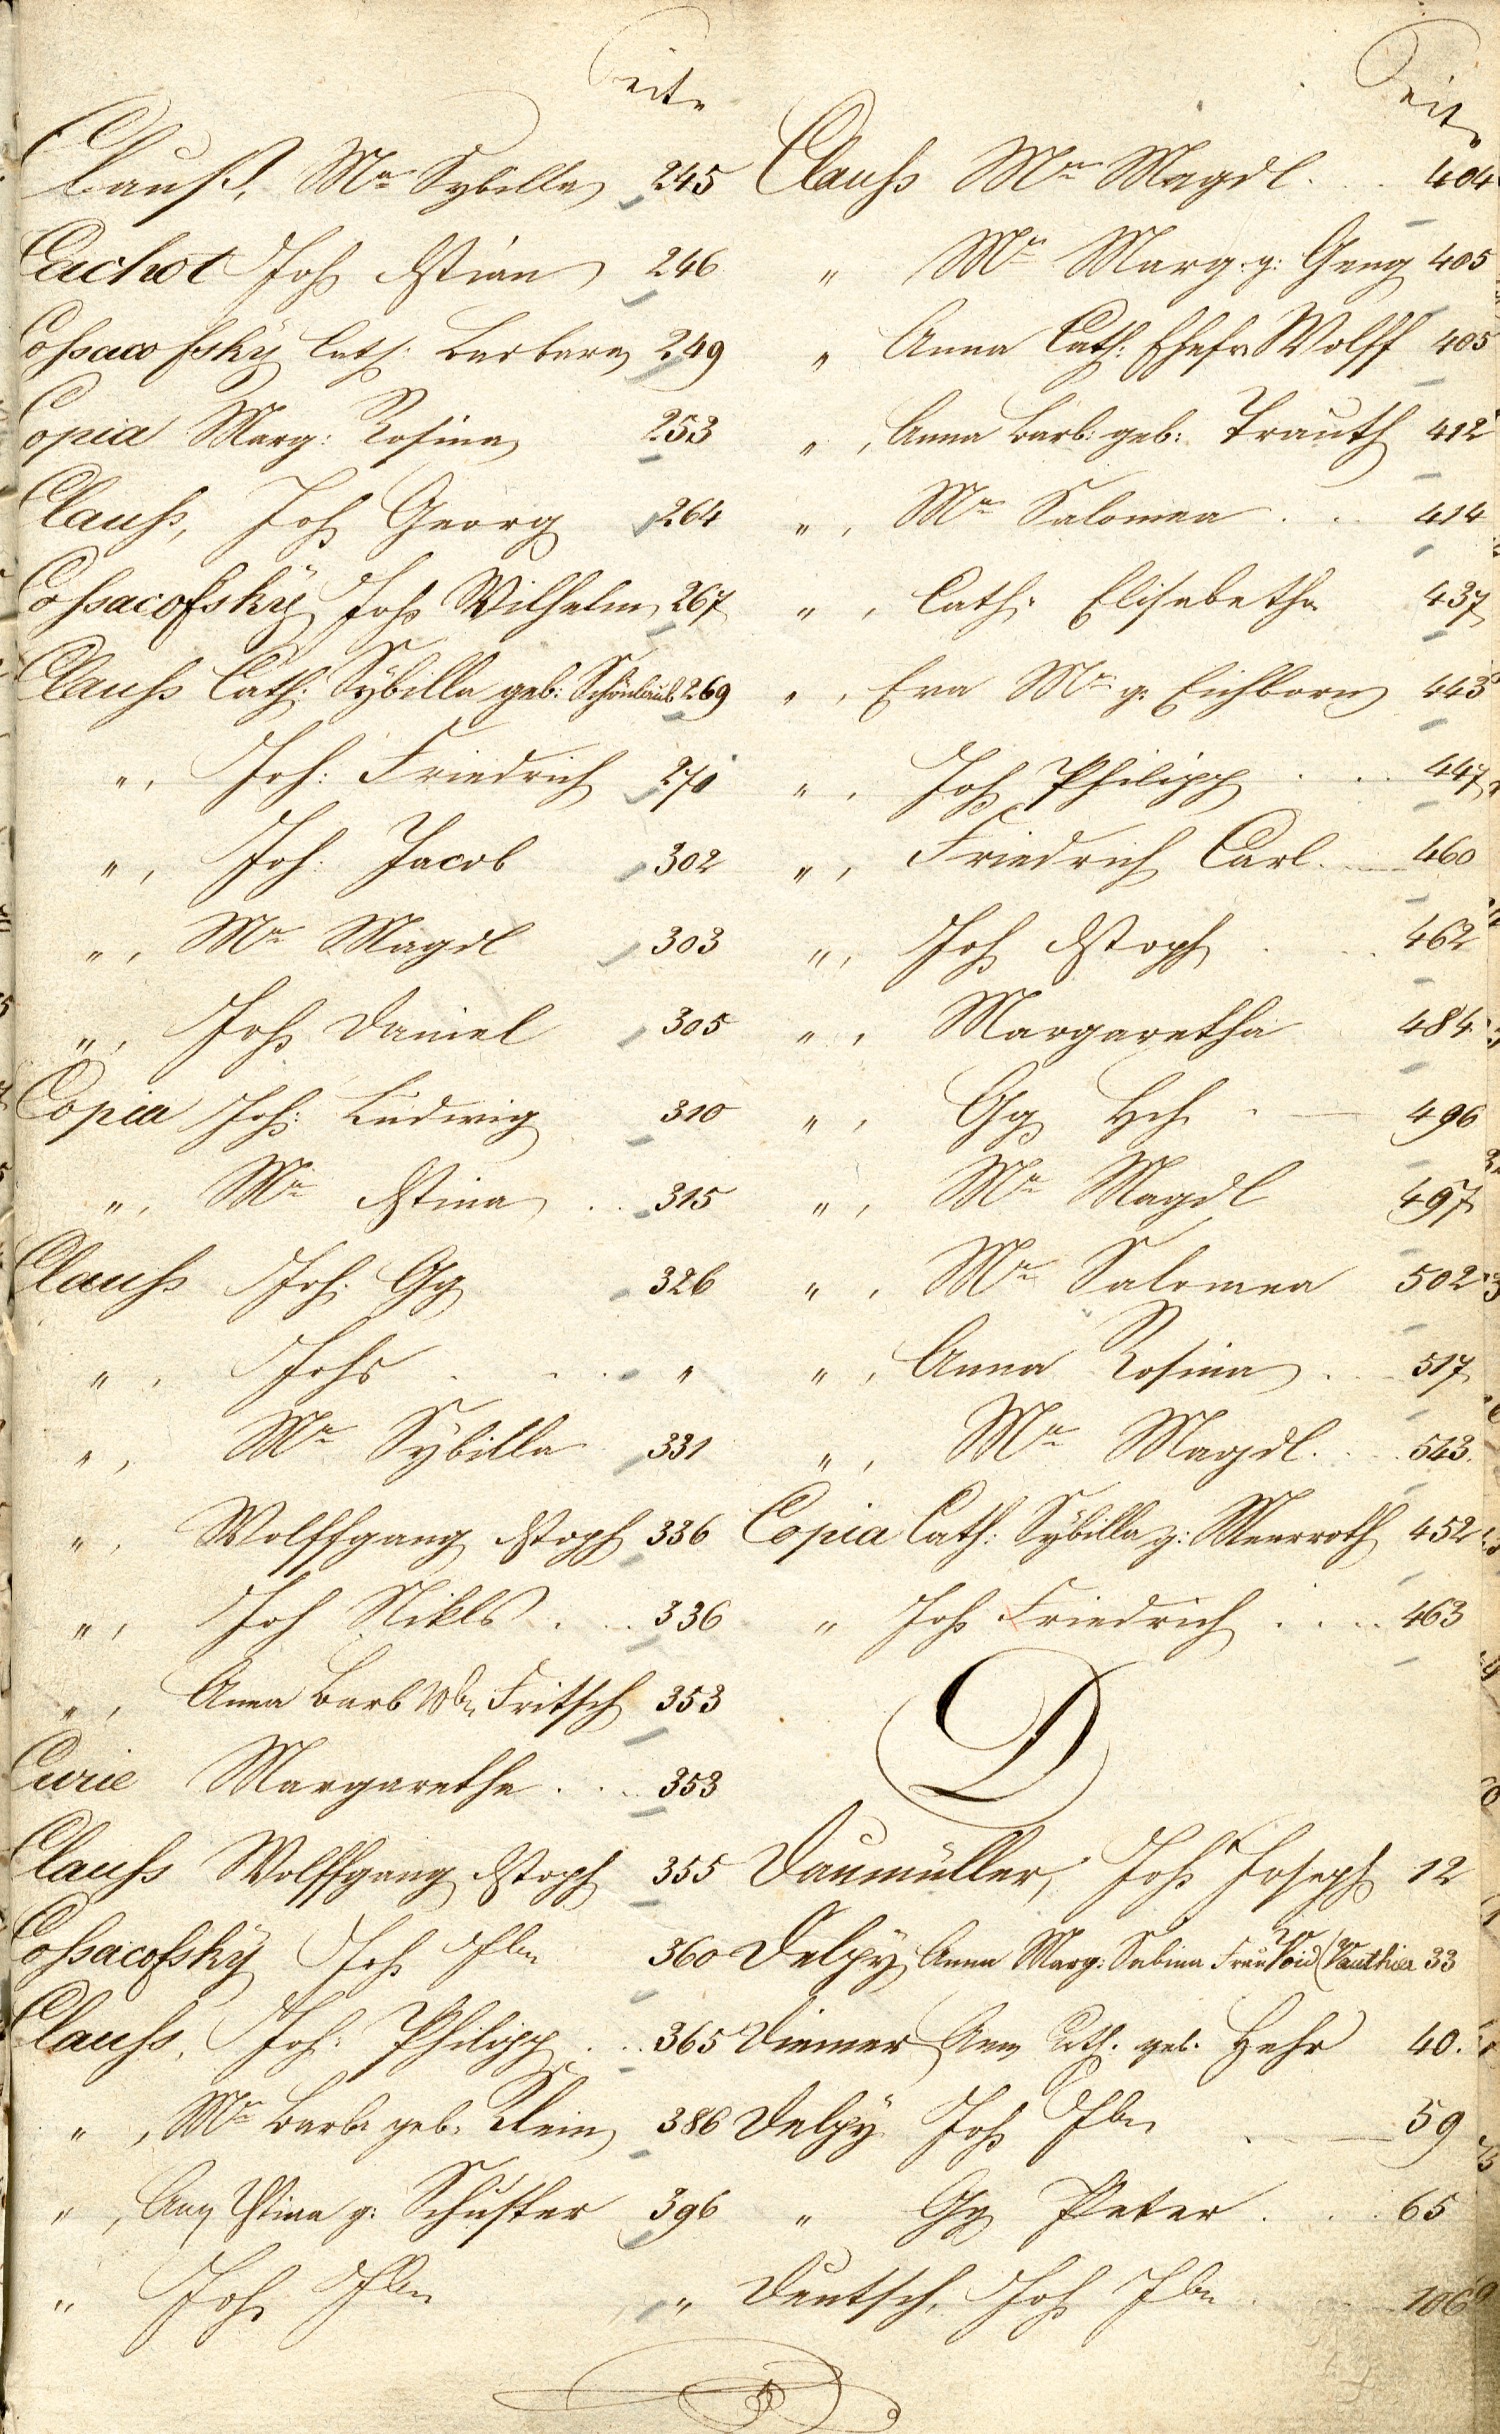 Seite
Clauß, Ma Sybilla 245
Cachot Joh xstian 246
Coßacofsky Cath: Barbara 249
Copia Marg: Rosina 253
Clauß, Joh Georg 264
Coßacofskÿ Johs Wilhelm 267
Clauß Cath: Sÿbilla geb: Schönlaub 269
" , Joh: Friedrich 270
" , Joh: Jacob 302
" , Ma Magdl 303
" , Johs Daniel 305
Copia Joh: Ludwig 310
" , Ma xstina . . 315
Clauß Joh: Gg 326
" , Johs . . . . "
" , Ma Sÿbilla 331
" , Wolffgang xstoph 336
" , Joh Nikls . . . 336
" , Anna Barb Fritsch 353
Curie Margaretha . . . 353
Clauß Wolffgang xstoph 355
Coßacofskÿ Joh 360
Clauß, Joh: Philipp . . . 365
" , Ma Barb geb: Klein 386
" , Ana Xstina g: Schuster 396
" Joh "
Seite
Clauß Ma Magdl . . . 404
" Ma Marg: g: Geng 405
" Anna Cath: Ehefr Wolff 405
" , Anna Barb: geb: Trauth 412
" , Ma Salomea . . . 414
" , Cath: Elisabetha 437
" , Eva Ma g: Eichborn 443
" , Joh Philipp . . . 447
" , Friedrich Carl . 460
" , Joh xstoph . . . 462
" , Margaretha 484
" , Gg Hch . — 496
" , Ma Magdl 497
" , Ma Salomea 502
" , Anna Rosina . . . 517
" , Ma Magdl . . . 543
Copia Cath: Sÿbilla g: Meerroth 452
" Johs Friedrich . . . . 463
D
Daumüller, Johs Joseph 12
Delpy Anna Marg: Sabina Frau (Vauthier 33
Diemer Ann Cath. geb. Hehr 40.
Delpÿ Joh 59
" Gg Peter . . . 65
Deutsch, Joh 106